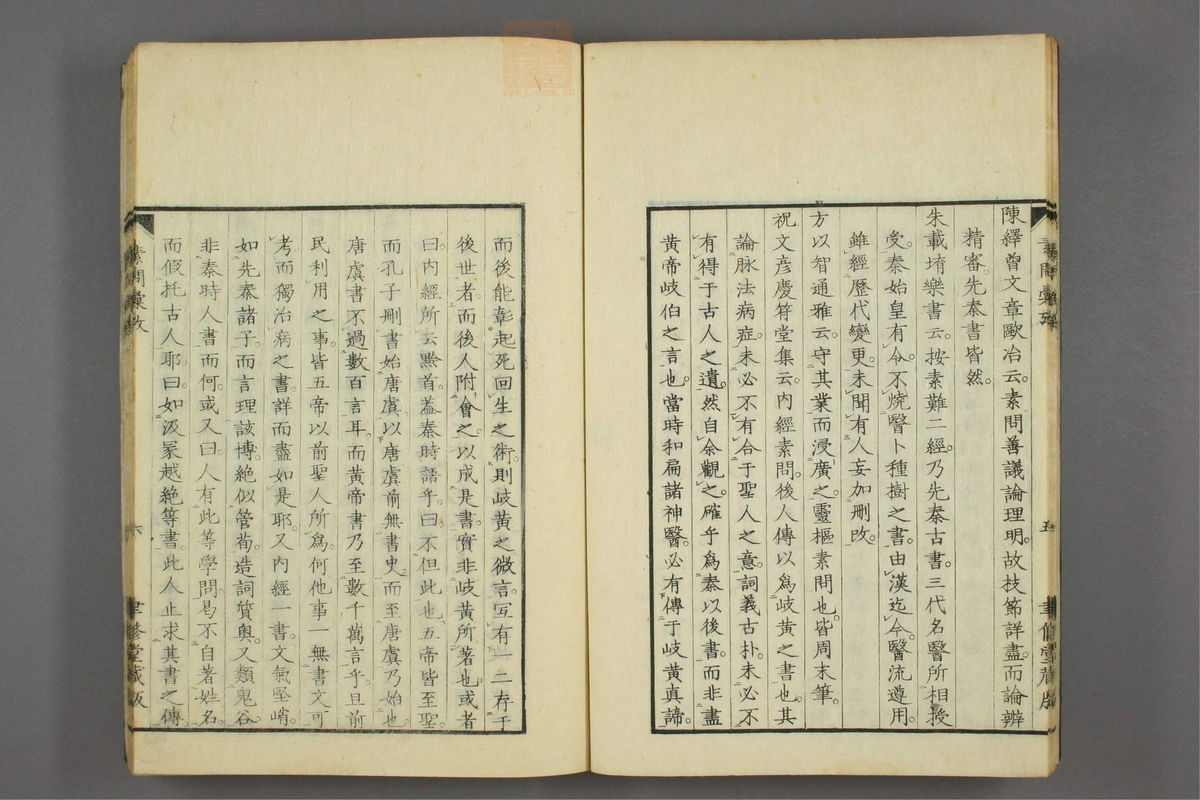 陳繹曾文章歐冶云。素問善議論理明。故枝節詳盡。而論辨
精審。先秦書皆然。
朱載堉樂書云。按素難二經。乃先秦古書。三代名醫所相授
受。秦始皇有令。不燒醫卜種樹之書。由漢迄今。醫流遵用。
雖經歷代變更。未聞有人妄加刪改。
方以智通雅云。守其業而浸廣之。靈樞素問也。皆周末筆。
祝文彥慶符堂集云。內經素問。後人傳以爲岐黃之書也。其
論脉法病症。未必不有合于聖人之意。詞義古朴。未必不
有得于古人之遺。然自余觀之。確乎爲秦以後書。而非盡
黃帝岐伯之言也。當時和扁諸神醫。必有傳于岐黃眞諦。
五
聿修堂藏版
而後能彰起死回生之術。則岐黃之微言。宜有一二存于
後世者。而後人附會之。以成是書。實非岐黃所著也。或者
曰。內經所云黔首。蓋秦時語乎。曰。不但此也。五帝皆至聖。
而孔子刪書。始唐虞。以唐虞前無書史。而至唐虞乃始也。
唐虞書不過數百言耳。而黃帝書乃至數千萬言乎。且前
民利用之事。皆五帝以前聖人所爲。何他事一無書文可
考。而獨治病之書。詳而盡如是耶。又內經一書。文氣堅峭。
如先秦諸子。而言理該博。絕似管荀。造詞質奧。又類鬼谷。
非秦時人書而何。或又曰。人有此等學問。曷不自著姓名。
而假托古人耶。曰。如汲冢越絕等書。此人止求其書之傳。
素問彙攷
六
聿修堂藏版